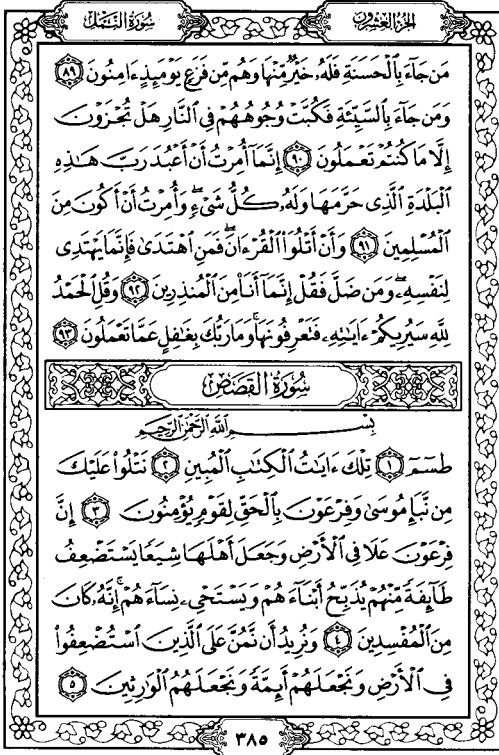 سُورَةُ النَّمْلِ
الجُزْءُ العِشْرُونَ
مَن جَآءَ بِٱلْحَسَنَةِ فَلَهُۥ خَيْرٌ مِّنْهَا وَهُم مِّن فَزَعٍ يَوْمَئِذٍ ءَامِنُونَ ٨٩
وَمَن جَآءَ بِٱلسَّيِّئَةِ فَكُبَّتْ وُجُوهُهُمْ فِى ٱلنَّارِ هَلْ تُجْزَوْنَ
إِلَّا مَا كُنتُمْ تَعْمَلُونَ ٩٠ إِنَّمَآ أُمِرْتُ أَنْ أَعْبُدَ رَبَّ هَـٰذِهِ
ٱلْبَلْدَةِ ٱلَّذِى حَرَّمَهَا وَلَهُۥ كُلُّ شَىْءٍۖ وَأُمِرْتُ أَنْ أَكُونَ مِنَ
ٱلْمُسْلِمِينَ ٩١ وَأَنْ أَتْلُوَا۟ ٱلْقُرْءَانَۖ فَمَنِ ٱهْتَدَىٰ فَإِنَّمَا يَهْتَدِى
لِنَفْسِهِۦۖ وَمَن ضَلَّ فَقُلْ إِنَّمَآ أَنَا۠ مِنَ ٱلْمُنذِرِينَ ٩٢ وَقُلِ ٱلْحَمْدُ
لِلَّهِ سَيُرِيكُمْ ءَايَـٰتِهِۦ فَتَعْرِفُونَهَاۚ وَمَا رَبُّكَ بِغَـٰفِلٍ عَمَّا تَعْمَلُونَ ٩٣
سُورَةُ القَصَصِ
بِسْمِ ٱللَّهِ ٱلرَّحْمَـٰنِ ٱلرَّحِيمِ
طسٓمٓ ١ تِلْكَ ءَايَـٰتُ ٱلْكِتَـٰبِ ٱلْمُبِينِ ٢ نَتْلُوا۟ عَلَيْكَ
مِن نَّبَإِ مُوسَىٰ وَفِرْعَوْنَ بِٱلْحَقِّ لِقَوْمٍ يُؤْمِنُونَ ٣ إِنَّ
فِرْعَوْنَ عَلَا فِى ٱلْأَرْضِ وَجَعَلَ أَهْلَهَا شِيَعًا يَسْتَضْعِفُ
طَآئِفَةً مِّنْهُمْ يُذَبِّحُ أَبْنَآءَهُمْ وَيَسْتَحْىِۦ نِسَآءَهُمْۚ إِنَّهُۥ كَانَ
مِنَ ٱلْمُفْسِدِينَ ٤ وَنُرِيدُ أَن نَّمُنَّ عَلَى ٱلَّذِينَ ٱسْتُضْعِفُوا۟
فِى ٱلْأَرْضِ وَنَجْعَلَهُمْ أَئِمَّةً وَنَجْعَلَهُمُ ٱلْوَٰرِثِينَ ٥
٣٨٥